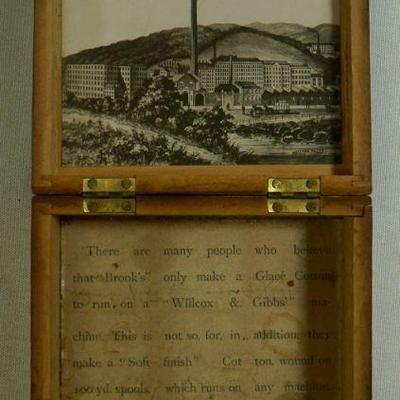 There are many people who believe
that "Brook's" only make a Glacé Cotton
to run on a "Willcox & Gibbs'" ma-
chine. This is not so, for, in addition, they
make a "Soft finish" Cot ton, wound on
100 yd. spools, which runs on any machine